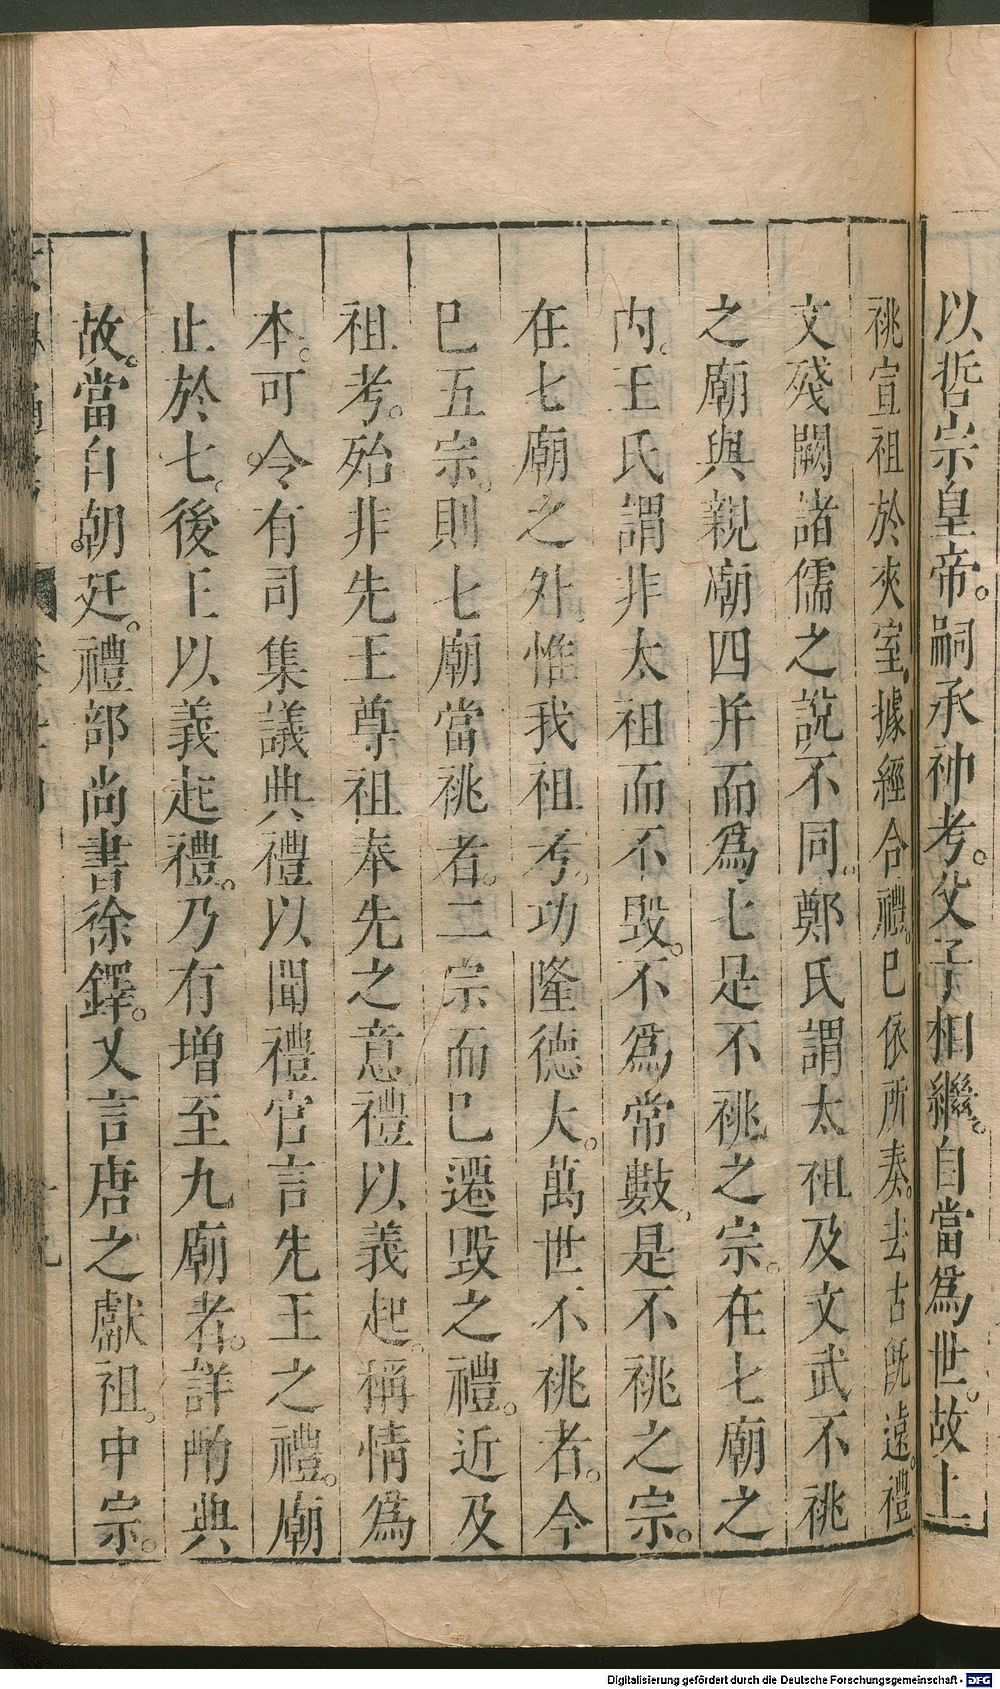 以哲宗皇帝。嗣承神考。父子相繼。自當爲世。故上
祧宣祖於夾室。據經合禮。巳依所奏。去古旣遠。禮
文殘闕諸儒之說不同。鄭氏謂太祖及文武不祧
之廟與親廟四并而爲七是不祧之宗。在七廟之
內。王氏謂非太祖而不毁。不爲常數。是不祧之宗。
在七廟之外。惟我祖考。功隆德大。萬世不祧者。今
巳五宗。則七廟當祧者。二宗而巳遷毁之禮。近及
祖考。殆非先王尊祖奉先之意禮以義起。稱情爲
本。可令有司集議典禮以聞禮官言先王之禮。廟
止於七。後王以義起禮。乃有增至九廟者。詳酌典
故。當自朝廷。禮部尚書徐鐸。又言唐之獻祖。中宗。
Digitalisierung gefördert durch die Deutsche Forschungsgemeinschaft - DFG